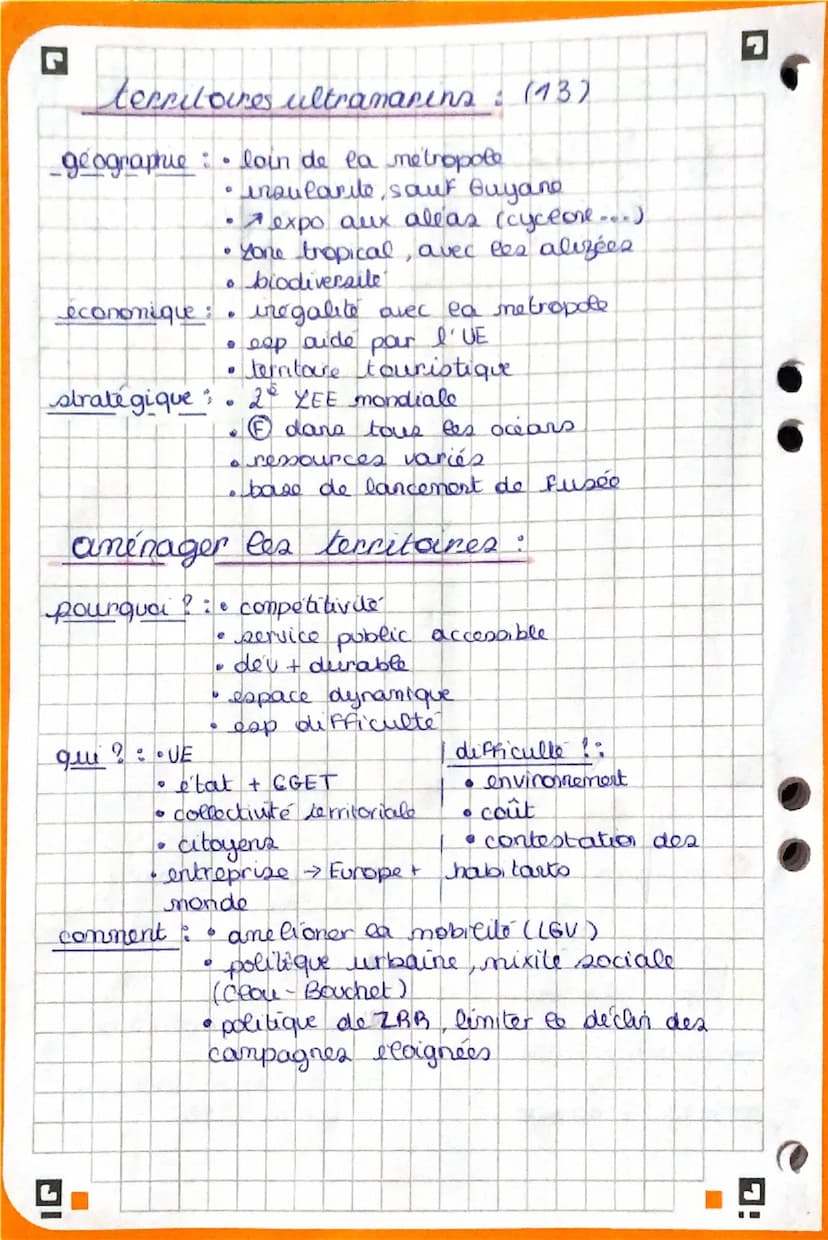 territoires ultramarins : (13)
géographie : • loin de la métropole
• insularité, sauf Guyane
• ↗ expo aux aléas (cyclone ...)
• zone tropical, avec les alizées
• biodiversité
économique : • inégalité avec la métropole
• esp aidé par l'UE
• territoire touristique
stratégique : • 2e ZEE mondiale
• Ⓕ dans tous les océans
• ressources variés
• base de lancement de fusée
aménager les territoires :
pourquoi ? : • compétitivité
• service public accessible
• dév + durable
• espace dynamique
• esp difficulté
qui ? : • UE
• état + CGET
• collectivité territoriale
• citoyens
• entreprise → Europe +
monde
difficulté ! :
• environnement
• coût
• contestation des
habitants
comment : • améliorer la mobilité (LGV)
• politique urbaine, mixité sociale
(Clou - Bouchet)
• politique de ZRR, limiter le déclin des
campagnes éloignées